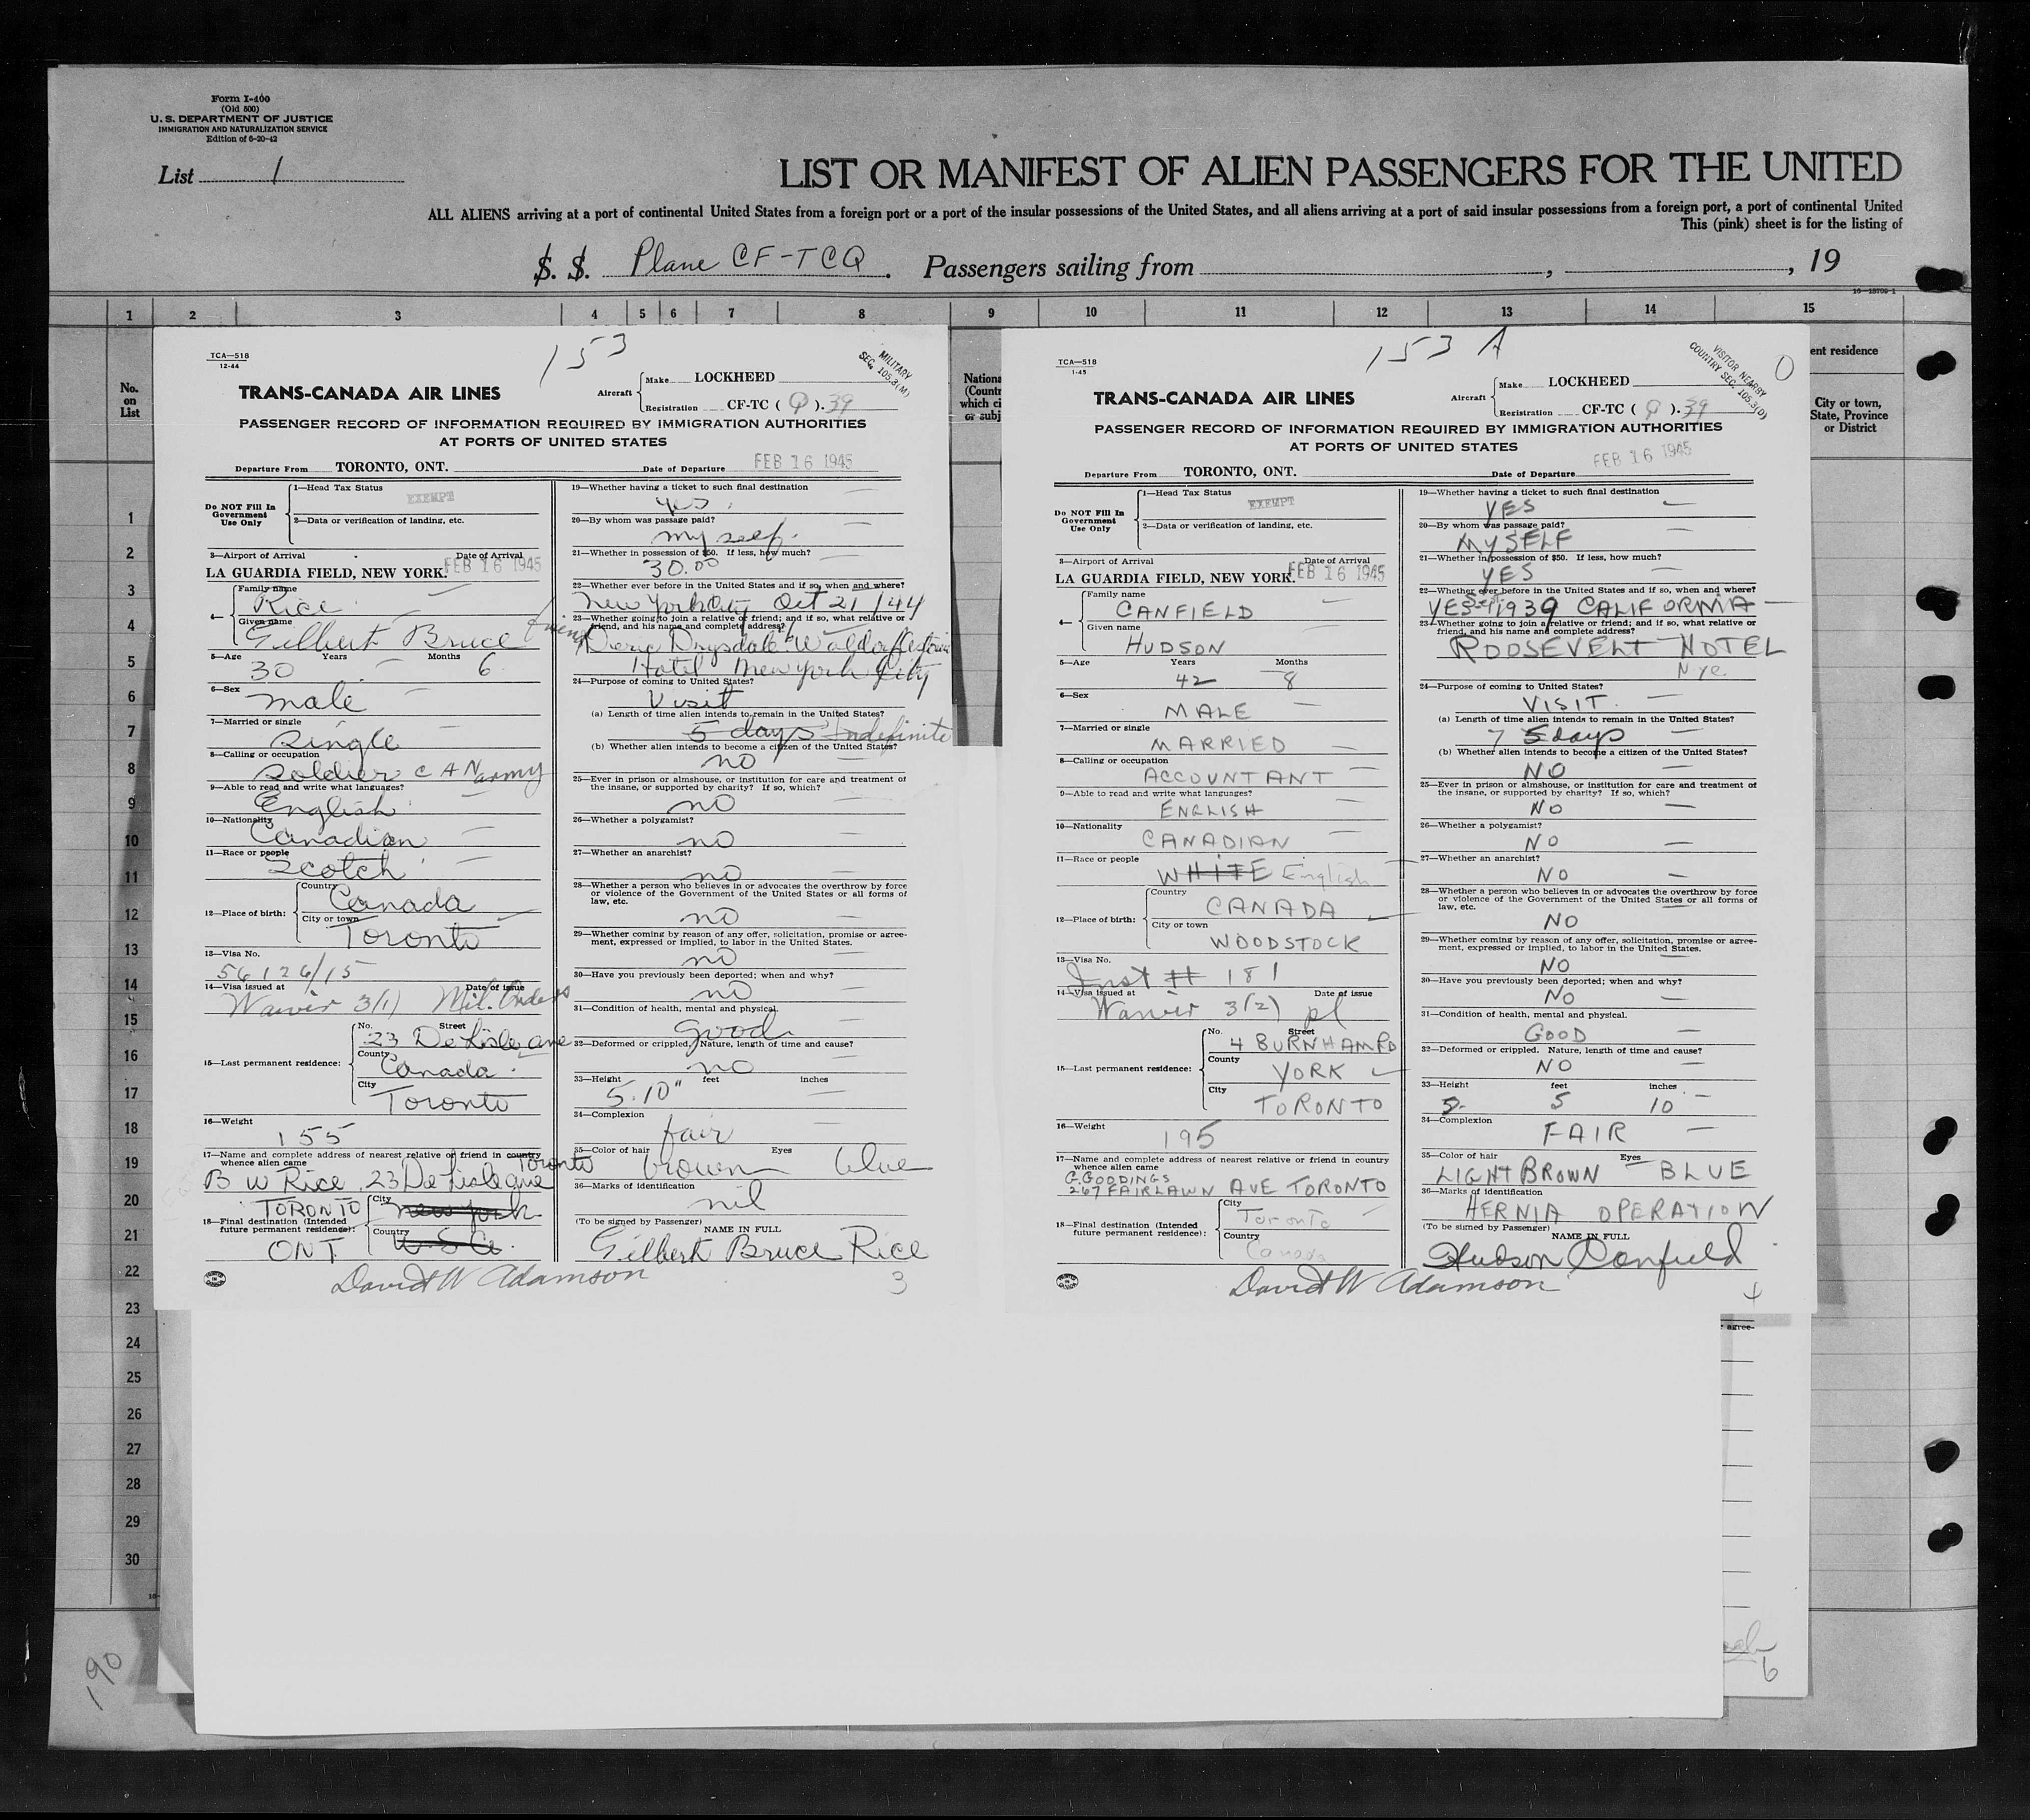 Form I-400
(Old 500)
U. S. DEPARTMENT OF JUSTICE
IMMIGRATION AND NATURALIZATION SERVICE
Edition of 6-20-42
List 1
LIST OR MANIFEST OF ALIEN PASSENGERS FOR THE UNITED
ALL ALIENS arriving at a port of continental United States from a foreign port or a port of the insular possessions of the United States, and all aliens arriving at a port of said insular possessions from a foreign port, a port of continental United
This (pink) sheet is for the listing of
S. S. Plane CF-TCQ. Passengers sailing from , , 19
16—13709-1
1 2 3 4 5 6 7 8 9 10 11 12 13 14 15
No.
on
List
Nationa
(Countr
which ci
or subj
ent residence
City or town,
State, Province
or District
153
TCA—518
12-44
MILITARY
SEC. 105.3(M)
TRANS-CANADA AIR LINES
Aircraft
Make LOCKHEED
Registration CF-TC ( Q ). 39
PASSENGER RECORD OF INFORMATION REQUIRED BY IMMIGRATION AUTHORITIES
AT PORTS OF UNITED STATES
Departure From TORONTO, ONT. Date of Departure FEB 16 1945
Do NOT Fill In
Government
Use Only
1—Head Tax Status EXEMPT
2—Data or verification of landing, etc.
3—Airport of Arrival Date of Arrival
LA GUARDIA FIELD, NEW YORK. FEB 16 1945
4—
Family name
Rice
Given name
Gilbert Bruce
5—Age Years Months
30 6
6—Sex
male
7—Married or single
single
8—Calling or occupation
soldier CAN army
9—Able to read and write what languages?
English
10—Nationality
Canadian
11—Race or people
Scotch
12—Place of birth:
Country
Canada
City or town
Toronto
13—Visa No.
56126/15
14—Visa issued at Date of issue
Waiver 3(1) Mil. Orders
15—Last permanent residence:
No. Street
23 De Lisle ave
County
Canada
City
Toronto
16—Weight
155
17—Name and complete address of nearest relative or friend in country
whence alien came
Toronto
B W Rice 23 De Lisle ave
18—Final destination (Intended
future permanent residence):
TORONTO
ONT.
City
New York
Country
U.S.A.
19—Whether having a ticket to such final destination
yes
20—By whom was passage paid?
my self
21—Whether in possession of $50. If less, how much?
30.00
22—Whether ever before in the United States and if so, when and where?
New York City Oct 21/44
23—Whether going to join a relative or friend; and if so, what relative or
friend, and his name and complete address?
friend
Drysdale Waldorf Astoria
Hotel New York City
24—Purpose of coming to United States?
Visit
(a) Length of time alien intends to remain in the United States?
5 days Indefinite
(b) Whether alien intends to become a citizen of the United States?
no
25—Ever in prison or almshouse, or institution for care and treatment of
the insane, or supported by charity? If so, which?
no
26—Whether a polygamist?
no
27—Whether an anarchist?
no
28—Whether a person who believes in or advocates the overthrow by force
or violence of the Government of the United States or all forms of
law, etc.
no
29—Whether coming by reason of any offer, solicitation, promise or agree-
ment, expressed or implied, to labor in the United States.
no
30—Have you previously been deported; when and why?
no
31—Condition of health, mental and physical.
good
32—Deformed or crippled. Nature, length of time and cause?
no
33—Height feet inches
5.10"
34—Complexion
fair
35—Color of hair Eyes
brown blue
36—Marks of identification
nil
(To be signed by Passenger)
NAME IN FULL
Gilbert Bruce Rice
David W Adamson
3
153 A
TCA—518
1-45
VISITOR NEARBY
COUNTRY SEC. 105.3(D)
0
TRANS-CANADA AIR LINES
Aircraft
Make LOCKHEED
Registration CF-TC ( Q ). 39
PASSENGER RECORD OF INFORMATION REQUIRED BY IMMIGRATION AUTHORITIES
AT PORTS OF UNITED STATES
Departure From TORONTO, ONT. Date of Departure FEB 16 1945
Do NOT Fill In
Government
Use Only
1—Head Tax Status EXEMPT
2—Data or verification of landing, etc.
3—Airport of Arrival Date of Arrival
LA GUARDIA FIELD, NEW YORK. FEB 16 1945
4—
Family name
CANFIELD
Given name
HUDSON
5—Age Years Months
42 8
6—Sex
MALE
7—Married or single
MARRIED
8—Calling or occupation
ACCOUNTANT
9—Able to read and write what languages?
ENGLISH
10—Nationality
CANADIAN
11—Race or people
WHITE English
12—Place of birth:
Country
CANADA
City or town
WOODSTOCK
13—Visa No.
Inst # 181
14—Visa issued at Date of issue
Waiver 3(2) pl
15—Last permanent residence:
No. Street
4 BURNHAM RD
County
YORK
City
TORONTO
16—Weight
195
17—Name and complete address of nearest relative or friend in country
whence alien came
G. GOODINGS
267 FAIRLAWN AVE TORONTO
18—Final destination (Intended
future permanent residence):
City
Toronto
Country
Canada
19—Whether having a ticket to such final destination
YES
20—By whom was passage paid?
MYSELF
21—Whether in possession of $50. If less, how much?
YES
22—Whether ever before in the United States and if so, when and where?
YES Sept 1939 CALIFORNIA
23—Whether going to join a relative or friend; and if so, what relative or
friend, and his name and complete address?
ROOSEVELT HOTEL
Nyc.
24—Purpose of coming to United States?
VISIT.
(a) Length of time alien intends to remain in the United States?
7 5 days
(b) Whether alien intends to become a citizen of the United States?
NO
25—Ever in prison or almshouse, or institution for care and treatment of
the insane, or supported by charity? If so, which?
NO
26—Whether a polygamist?
NO
27—Whether an anarchist?
NO
28—Whether a person who believes in or advocates the overthrow by force
or violence of the Government of the United States or all forms of
law, etc.
NO
29—Whether coming by reason of any offer, solicitation, promise or agree-
ment, expressed or implied, to labor in the United States.
NO
30—Have you previously been deported; when and why?
NO
31—Condition of health, mental and physical.
GOOD
32—Deformed or crippled. Nature, length of time and cause?
NO
33—Height feet inches
5 10
34—Complexion
FAIR
35—Color of hair Eyes
LIGHT BROWN BLUE
36—Marks of identification
HERNIA OPERATION
(To be signed by Passenger)
NAME IN FULL
Hudson Canfield
David W Adamson
4
r agree-
6
1
2
3
4
5
6
7
8
9
10
11
12
13
14
15
16
17
18
19
20
21
22
23
24
25
26
27
28
29
30
190